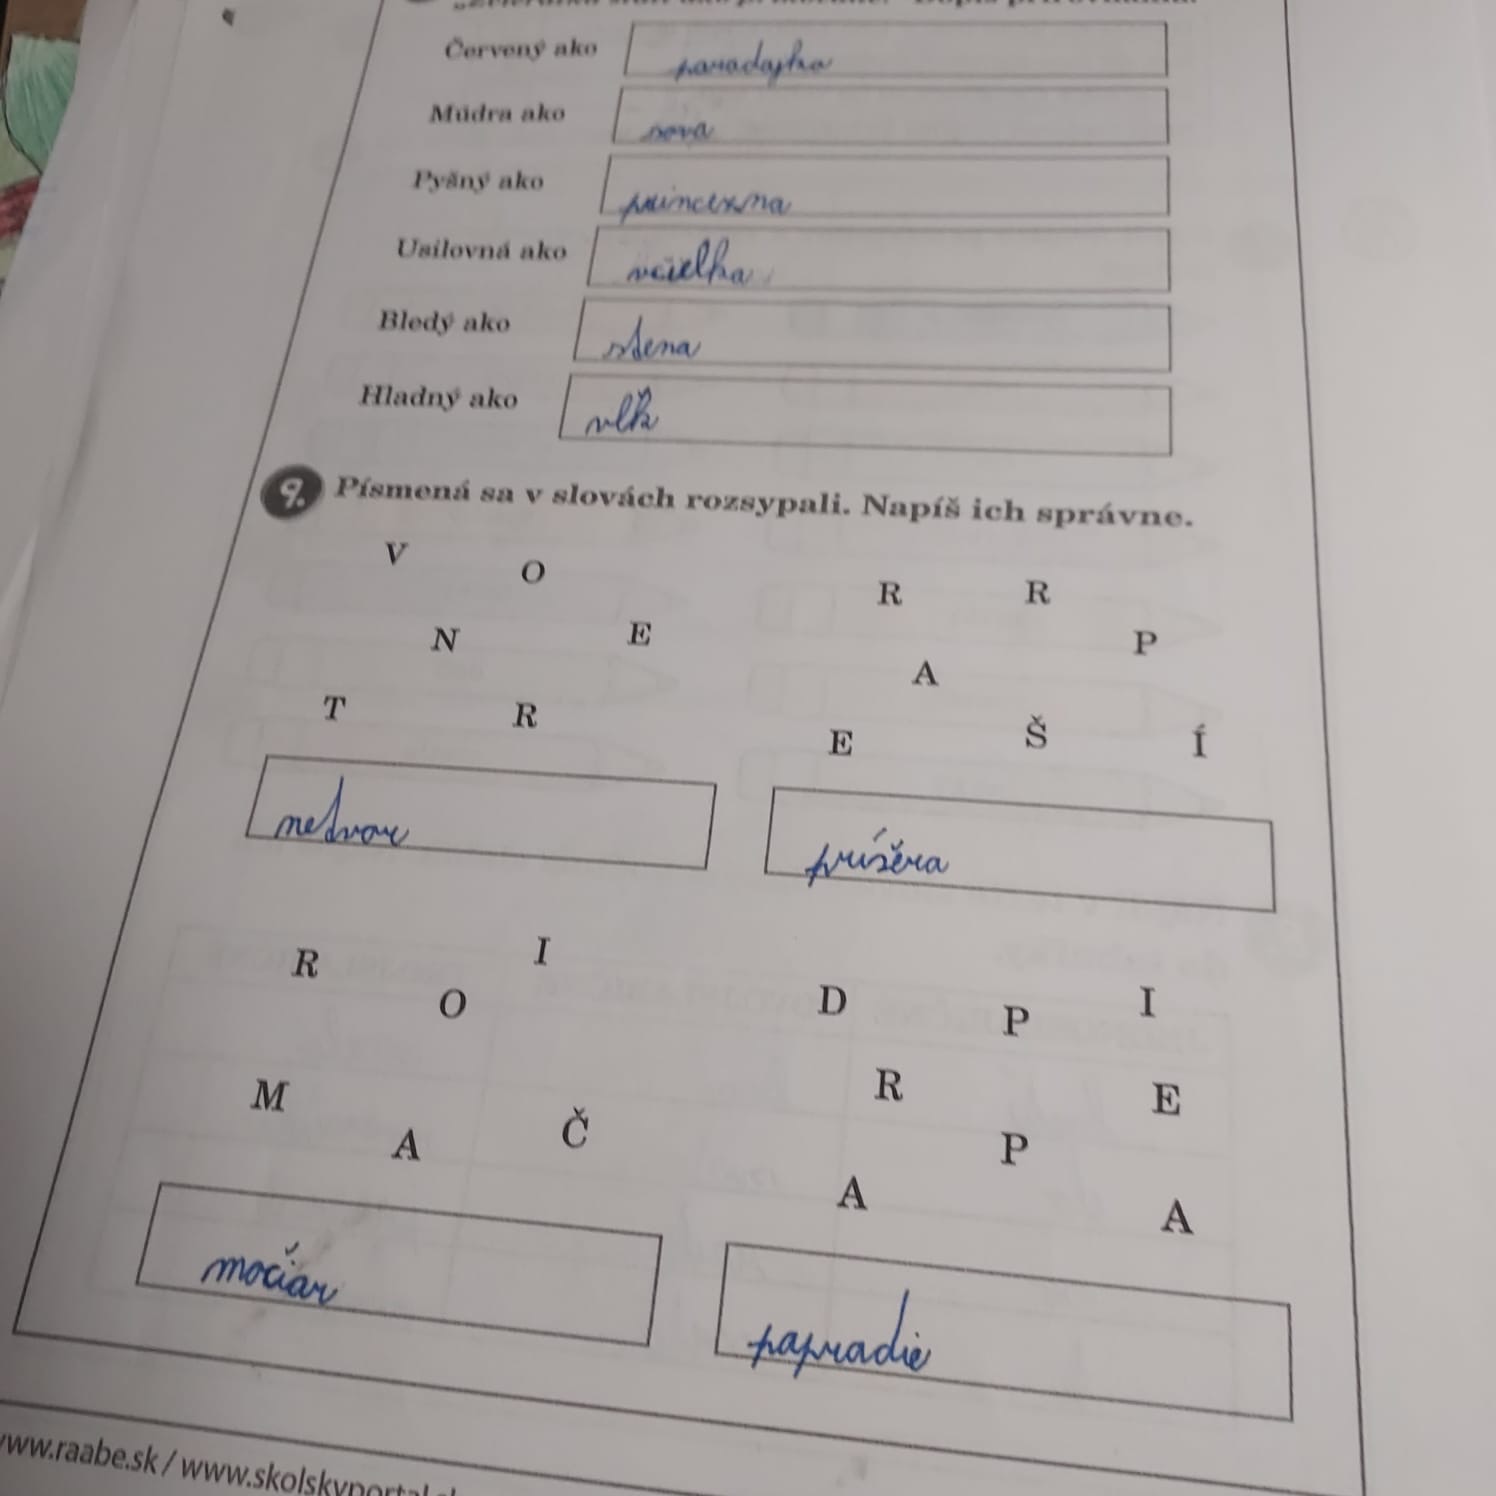 Červený ako paradajka
Múdra ako sova
Pyšný ako princezna
Usilovná ako včielka
Bledý ako stena
Hladný ako vlk
9. Písmená sa v slovách rozsypali. Napíš ich správne.
V O R R
N E P
A
T R E Š Í
netvor príšera
R I D P I
O
M R E
A Č P
A A
močiar papradie
www.raabe.sk / www.skolskyportal